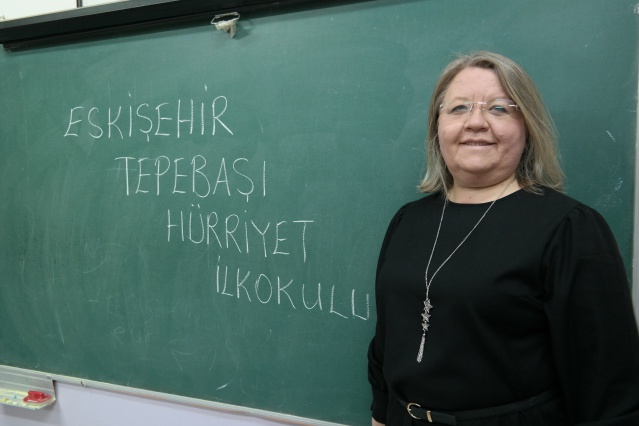 ESKİŞEHİR
TEPEBAŞI
HÜRRİYET
İLKOKULU